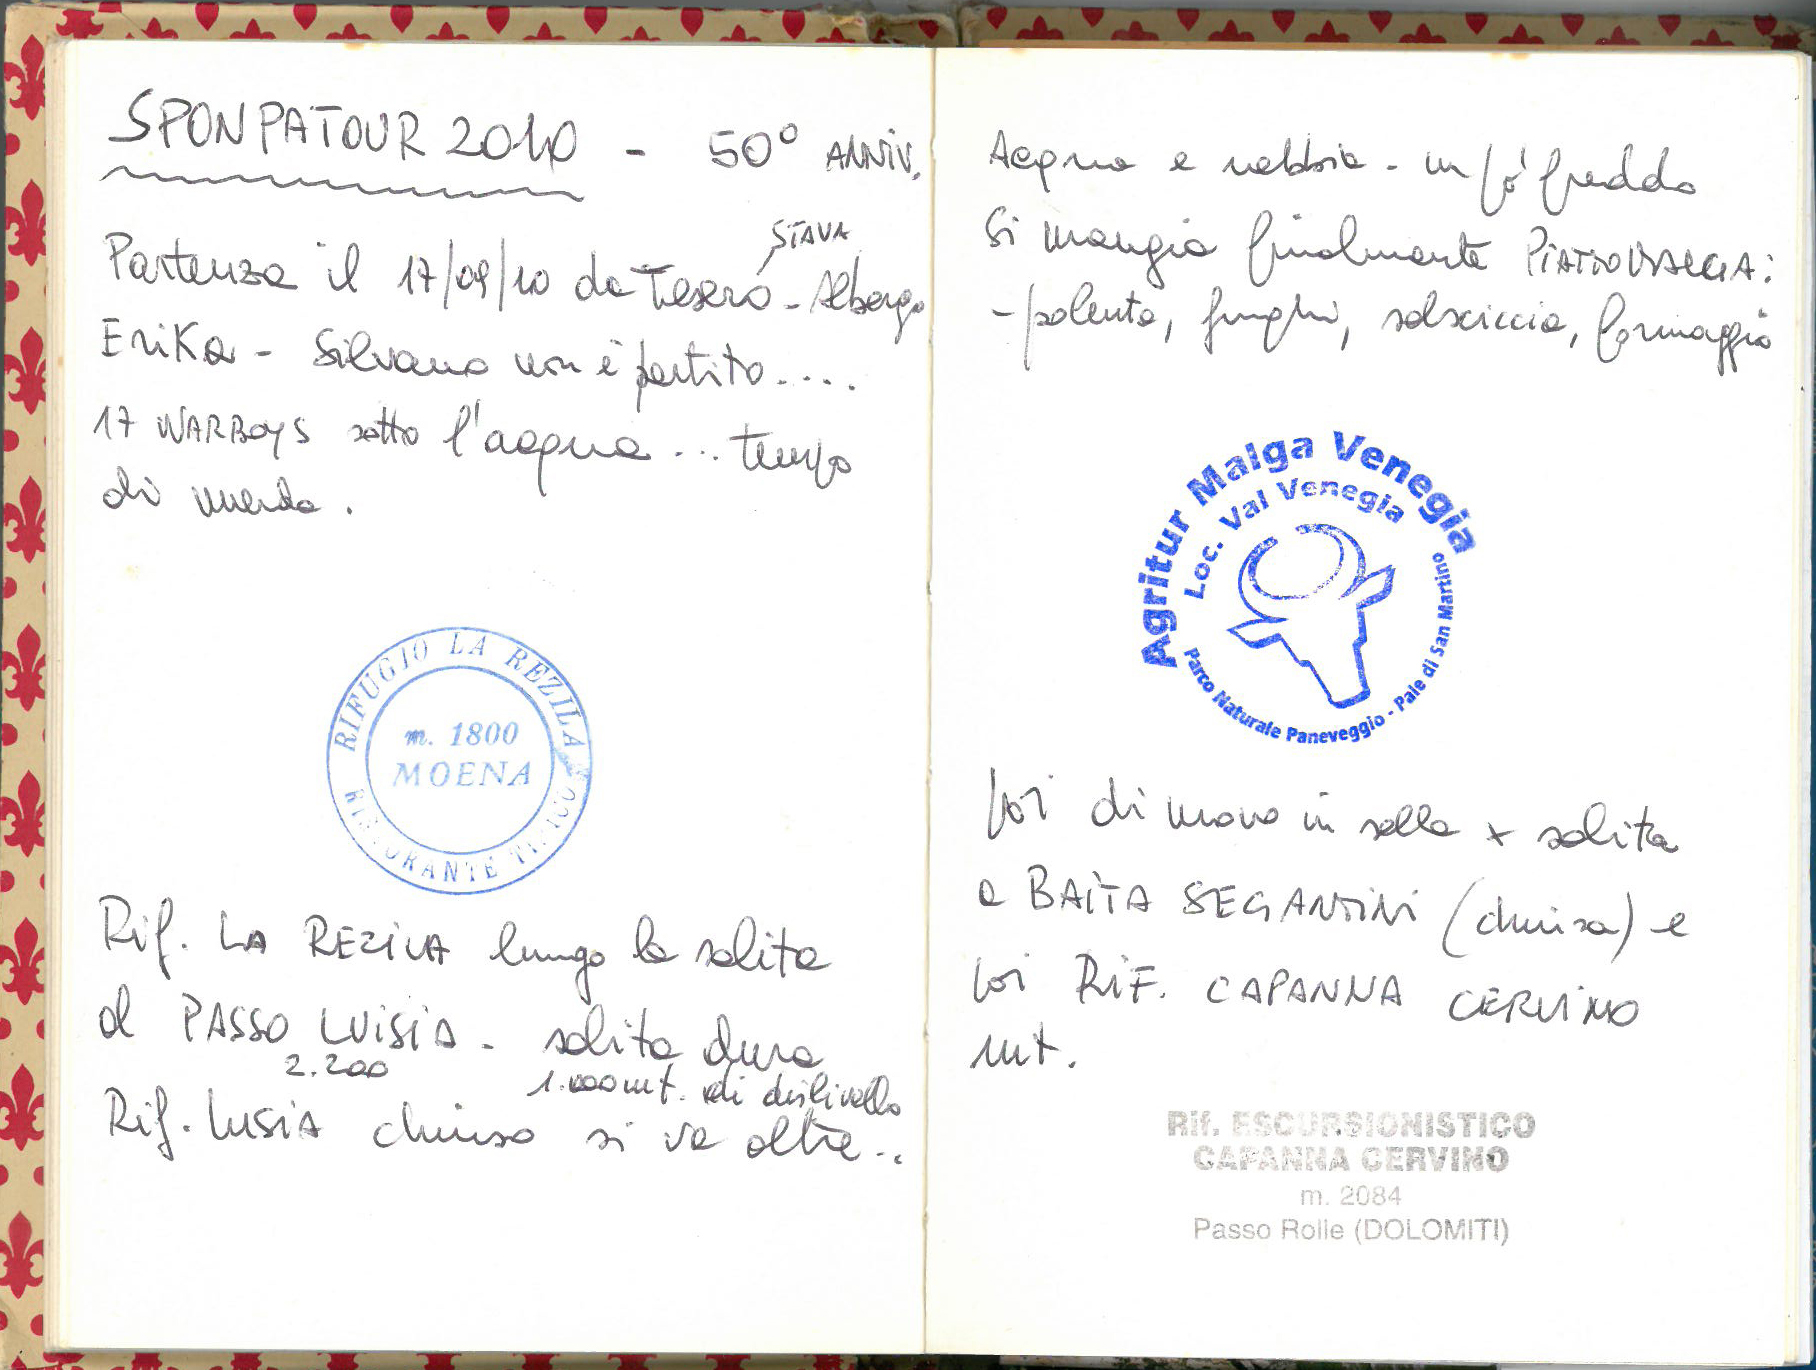 SPONPATOUR 2010 - 50° ANNIV.
STAVA
Partenza il 17/09/10 da Tesero - Albergo
Erika - Silvano non è partito.....
17 WARBOYS sotto l'acqua ... tempo
di merda.
RIFUGIO LA REZILA
m. 1800
MOENA
RISTORANTE TIPICO
Rif. LA REZILA lungo la salita
al PASSO LUISIA - salita dura
2.200 1.000 mt. di dislivello
Rif. LUSIA chiuso si va oltre...
Acqua e nebbia - un pò freddo
Si mangia finalmente PIATTO MALGA:
- polenta, funghi, salsiccia, formaggio
Agritur Malga Venegia
Loc. Val Venegia
Parco Naturale Paneveggio - Pale di San Martino
Poi di nuovo in sella x salita
a BAITA SEGANTINI (chiusa) e
poi RIF. CAPANNA CERVINO
mt.
Rif. ESCURSIONISTICO
CAPANNA CERVINO
m. 2084
Passo Rolle (DOLOMITI)